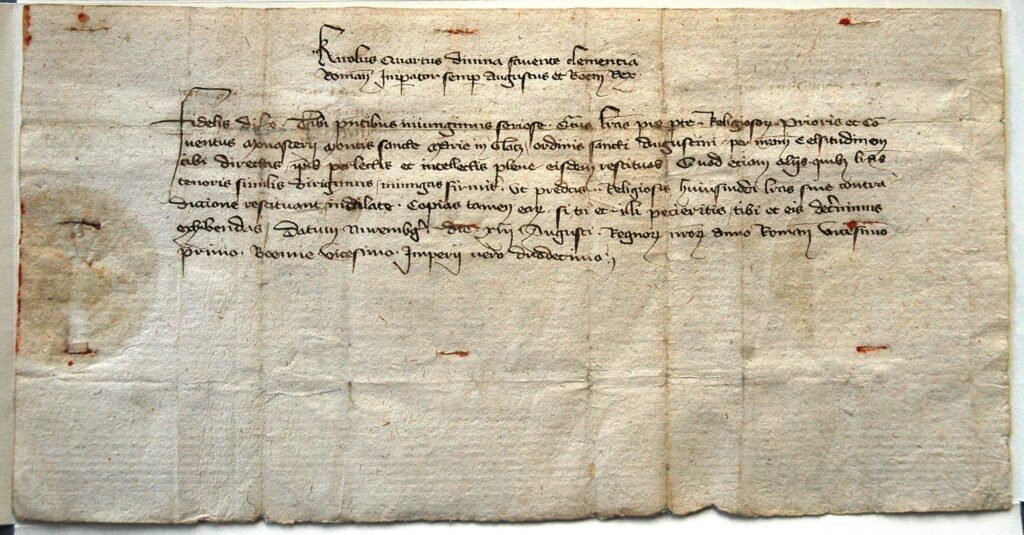 Karolus Quartus divina favente clementia
Roman Imperator semp Augustus et Boem Rex
Fidelis dilce Tibi pntibus iniungimus seriose Qtus lras pro pte Religiosor Prioris et Co
ventus Monasterii Montis sancte Marie in Glacz ordinis sancti Augustini per nram Celsitudinem
tibi directas ipsis plectis et intellectis plene eisdem restituas Quod eciam aliis quibz lras
tenoris similis dirigimus iniungas firmit Ut predcis Religiosis huiusmodi lras sine contra
diccione restituant indilate Copias tamen earz si tu et illi pecieritis tibi et eis decrnimus
exhibendas Datum Nuremberg die XVII Augusti Regnorz nrorz anno Roman vicesimo
primo Boemie vicesimo Imperii vero duodecimo